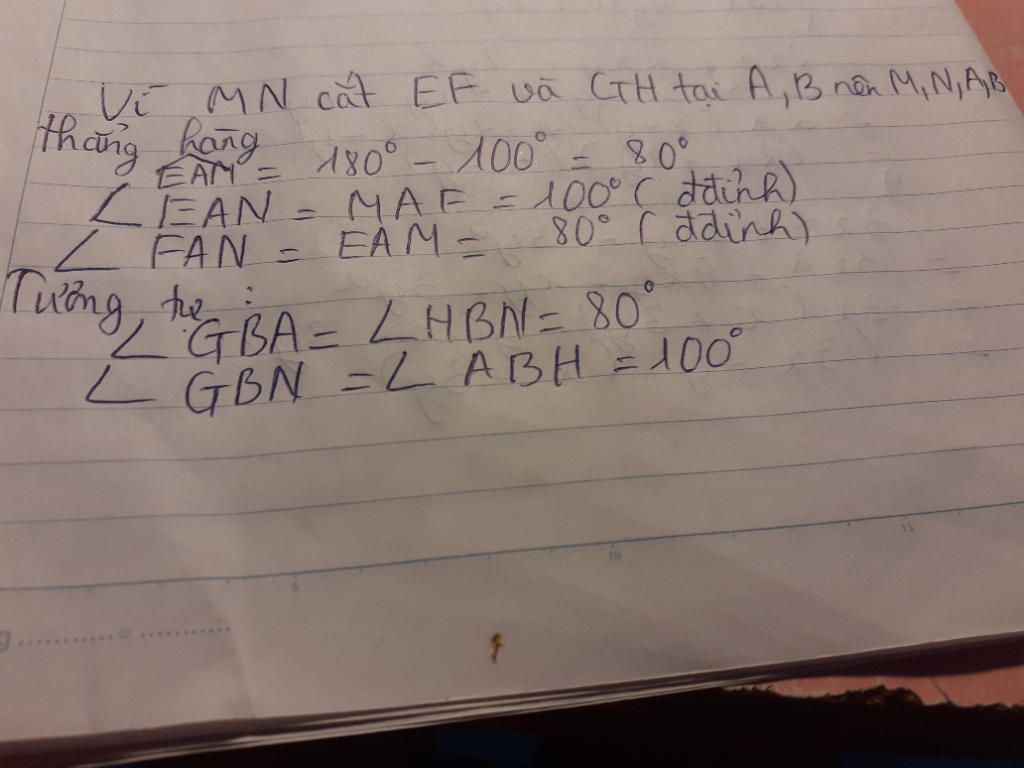 Vì MN cắt EF và GH tại A, B nên M, N, A, B
thẳng hàng
EAM = 180° - 100° = 80°
∠ EAN = MAF = 100° ( đđỉnh)
∠ FAN = EAM = 80° ( đđỉnh)
Tương tự :
∠ GBA = ∠ HBN = 80°
∠ GBN = ∠ ABH = 100°
5 10 15